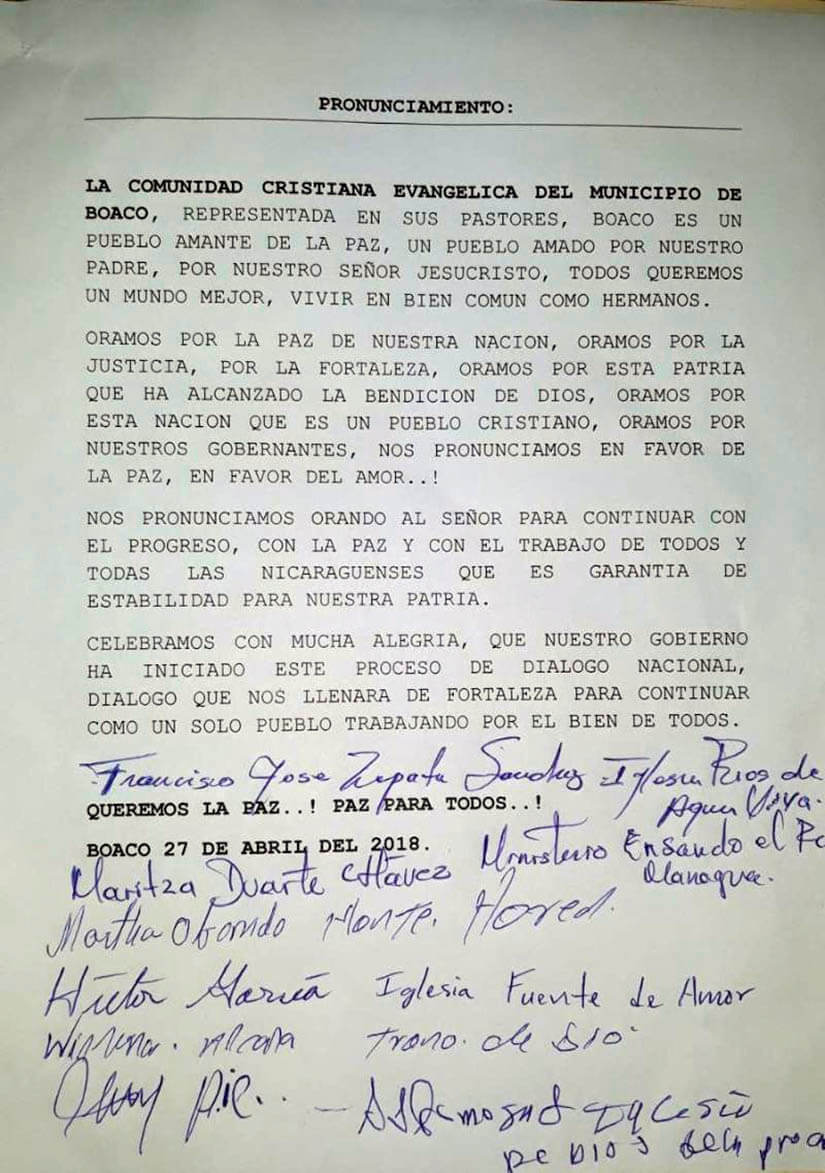 PRONUNCIAMIENTO:
LA COMUNIDAD CRISTIANA EVANGELICA DEL MUNICIPIO DE
BOACO, REPRESENTADA EN SUS PASTORES, BOACO ES UN
PUEBLO AMANTE DE LA PAZ, UN PUEBLO AMADO POR NUESTRO
PADRE, POR NUESTRO SEÑOR JESUCRISTO, TODOS QUEREMOS
UN MUNDO MEJOR, VIVIR EN BIEN COMUN COMO HERMANOS.
ORAMOS POR LA PAZ DE NUESTRA NACION, ORAMOS POR LA
JUSTICIA, POR LA FORTALEZA, ORAMOS POR ESTA PATRIA
QUE HA ALCANZADO LA BENDICION DE DIOS, ORAMOS POR
ESTA NACION QUE ES UN PUEBLO CRISTIANO, ORAMOS POR
NUESTROS GOBERNANTES, NOS PRONUNCIAMOS EN FAVOR DE
LA PAZ, EN FAVOR DEL AMOR..!
NOS PRONUNCIAMOS ORANDO AL SEÑOR PARA CONTINUAR CON
EL PROGRESO, CON LA PAZ Y CON EL TRABAJO DE TODOS Y
TODAS LAS NICARAGUENSES QUE ES GARANTIA DE
ESTABILIDAD PARA NUESTRA PATRIA.
CELEBRAMOS CON MUCHA ALEGRIA, QUE NUESTRO GOBIERNO
HA INICIADO ESTE PROCESO DE DIALOGO NACIONAL,
DIALOGO QUE NOS LLENARA DE FORTALEZA PARA CONTINUAR
COMO UN SOLO PUEBLO TRABAJANDO POR EL BIEN DE TODOS.
Francisco Jose Zapata Sanchez Iglesia Rios de
Agua Viva.
QUEREMOS LA PAZ..! PAZ PARA TODOS..!
BOACO 27 DE ABRIL DEL 2018.
Maritza Duarte Chávez Ministerio el
Managua.
Martha Obando Monte Hored.
Hector García Iglesia Fuente de Amor
de Dio
Iglesia
DE DIOS